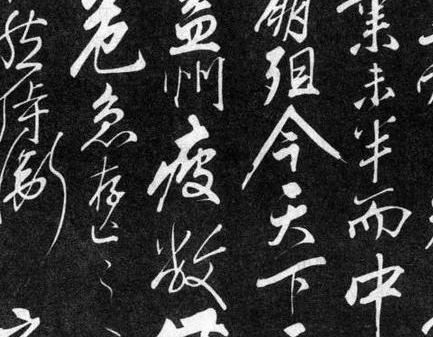 業未半而中
崩殂今天下
益州疲敝
危急存亡之
然侍衛